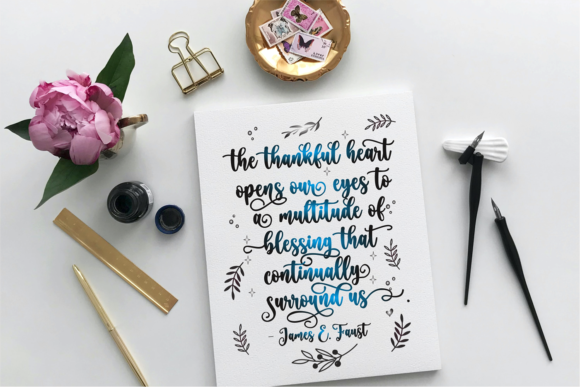 the thankful heart
opens our eyes to
a multitude of
blessing that
continually
surround us .
- James E. Faust